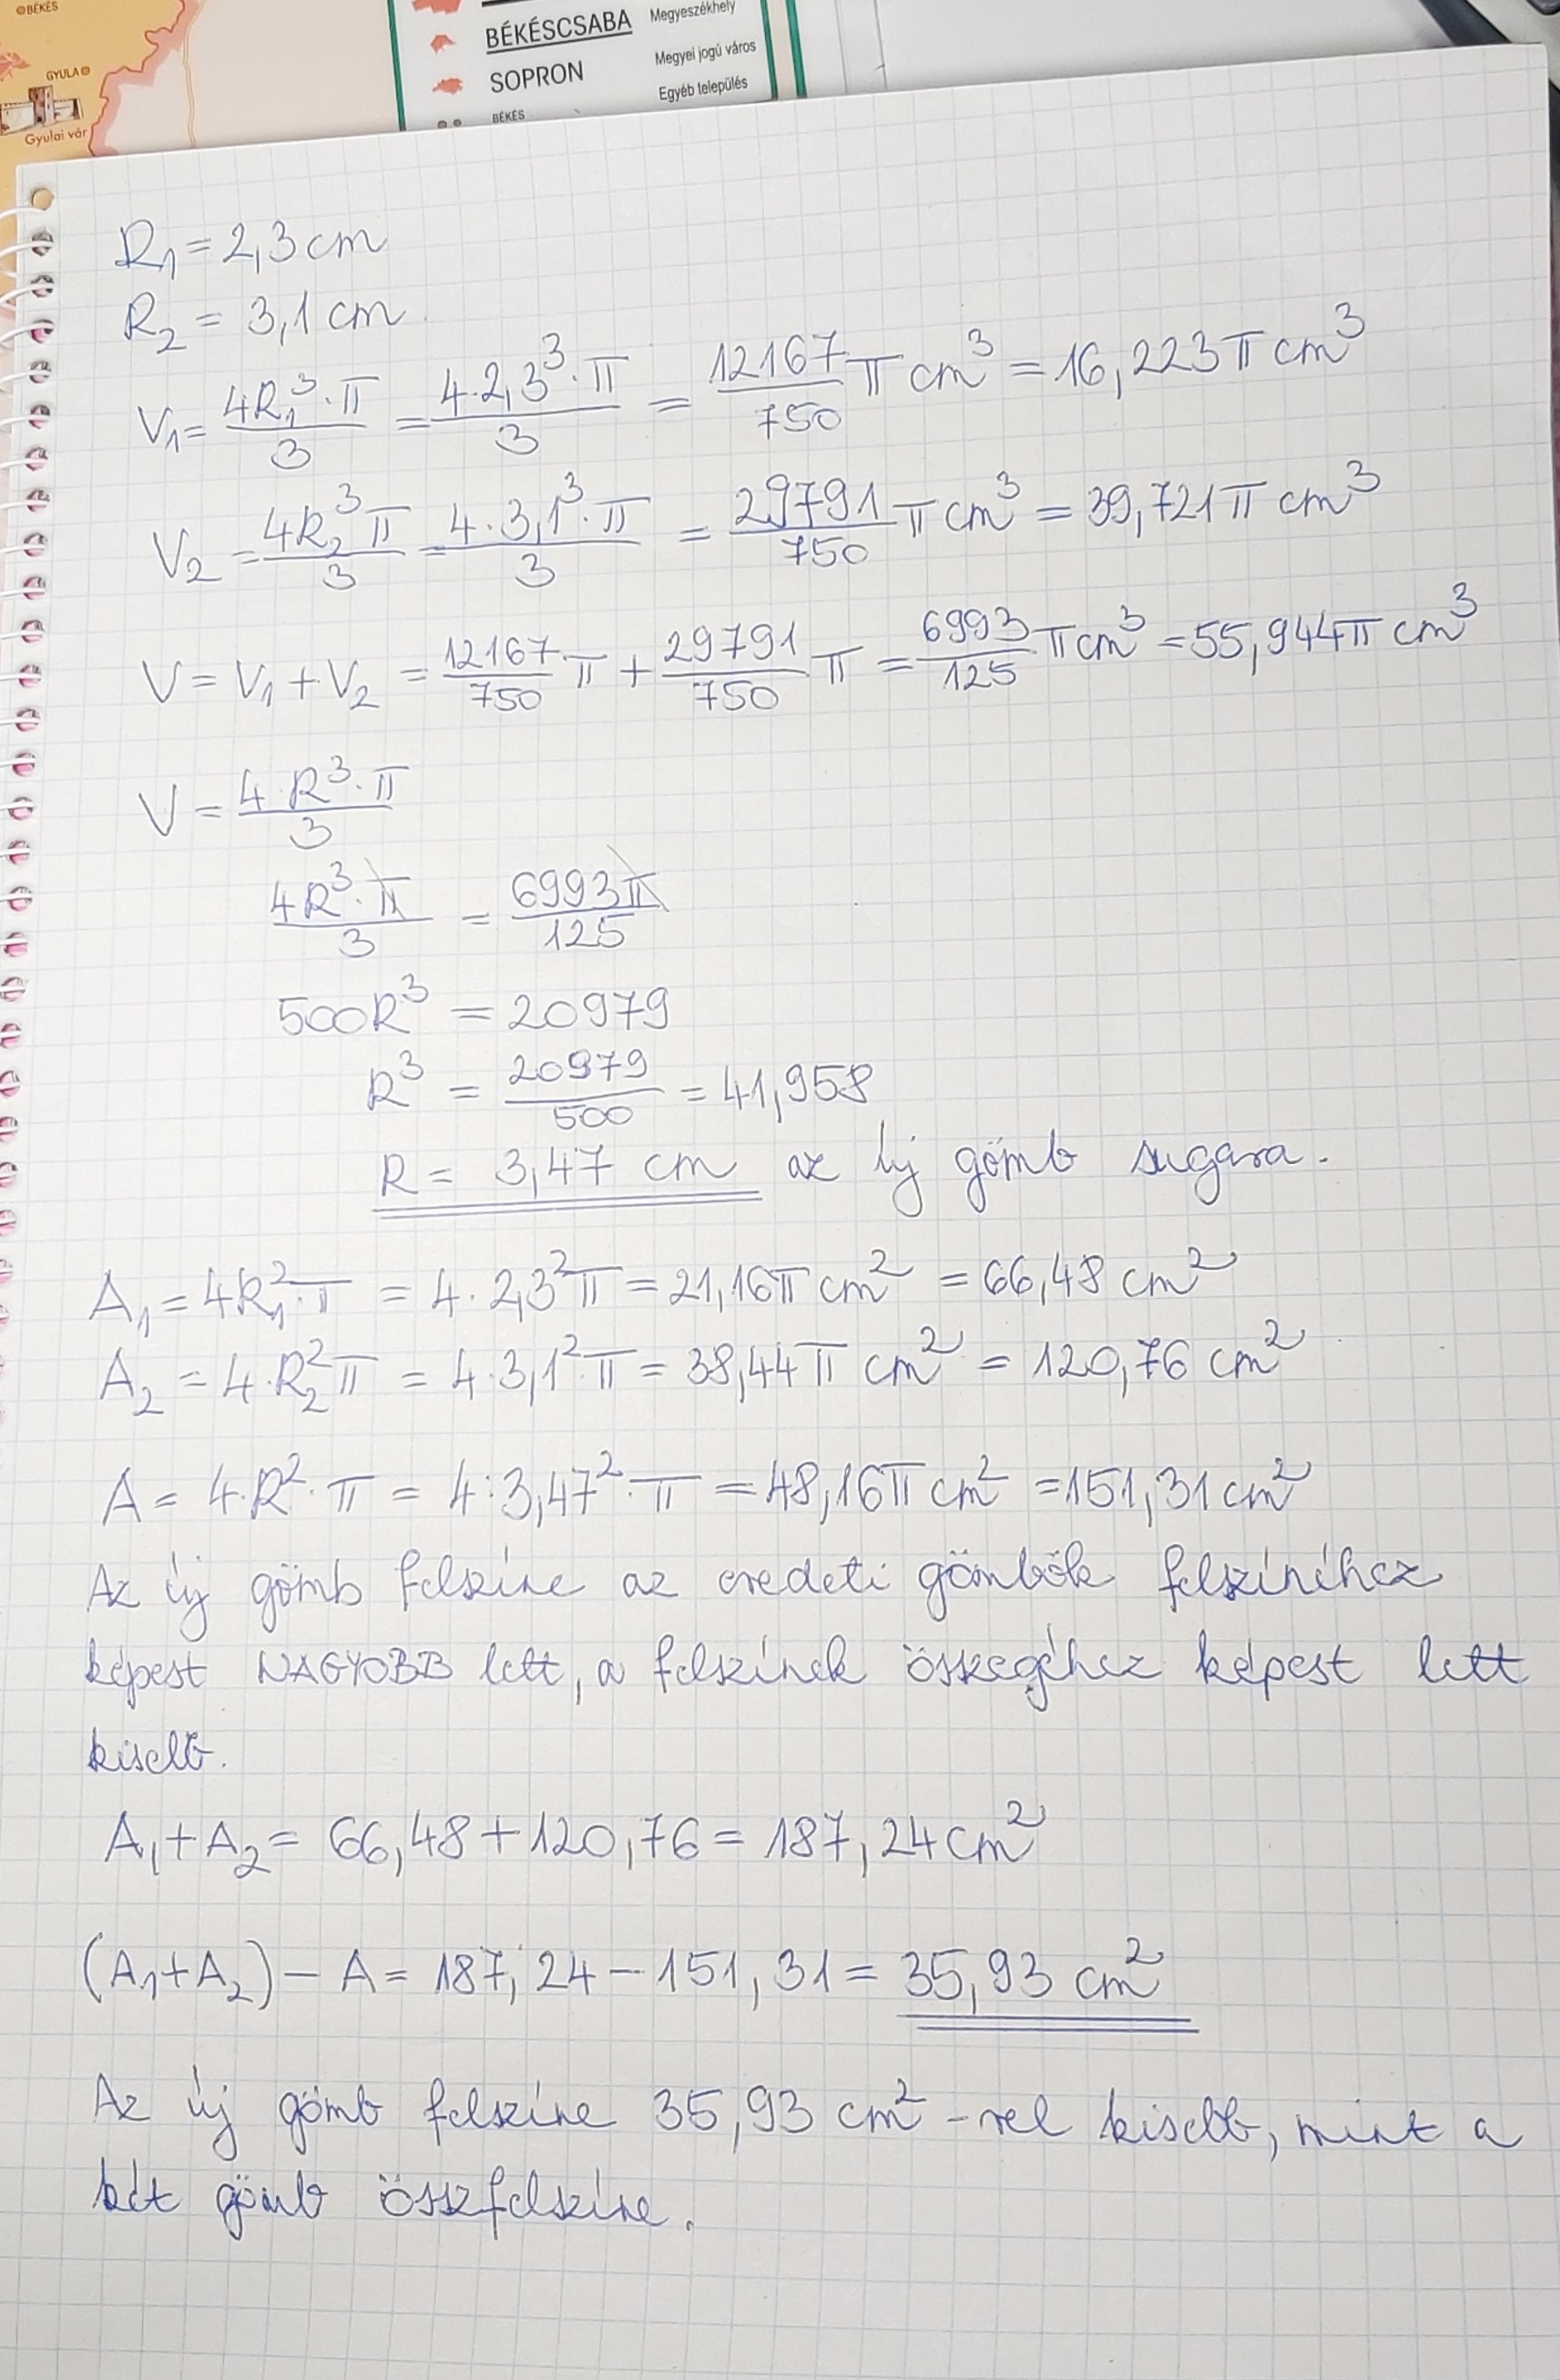 BÉKÉS
GYULA
Gyulai vár
BÉKÉSCSABA Megyeszékhely
SOPRON Megyei jogú város
BÉKÉS Egyéb település
R₁ = 2,3 cm
R₂ = 3,1 cm
V₁ = 4R₁³·π/3 = 4·2,3³·π/3 = 12167/750 π cm³ = 16,223π cm³
V₂ = 4R₂³π/3 = 4·3,1³·π/3 = 29791/750 π cm³ = 39,721π cm³
V = V₁ + V₂ = 12167/750 π + 29791/750 π = 6993/125 π cm³ = 55,944π cm³
V = 4·R³·π/3
4R³·π/3 = 6993π/125
500R³ = 20979
R³ = 20979/500 = 41,958
R = 3,47 cm az új gömb sugara.
A₁ = 4R₁²·π = 4·2,3²π = 21,16π cm² = 66,48 cm²
A₂ = 4·R₂²π = 4·3,1²·π = 38,44π cm² = 120,76 cm²
A = 4·R²·π = 4·3,47²·π = 48,16π cm² = 151,31 cm²
Az új gömb felszíne az eredeti gömbök felszínéhez
képest NAGYOBB lett, a felszínek összegéhez képest lett
kisebb.
A₁+A₂ = 66,48+120,76 = 187,24 cm²
(A₁+A₂) - A = 187,24 - 151,31 = 35,93 cm²
Az új gömb felszíne 35,93 cm² -rel kisebb, mint a
két gömb összfelszíne.